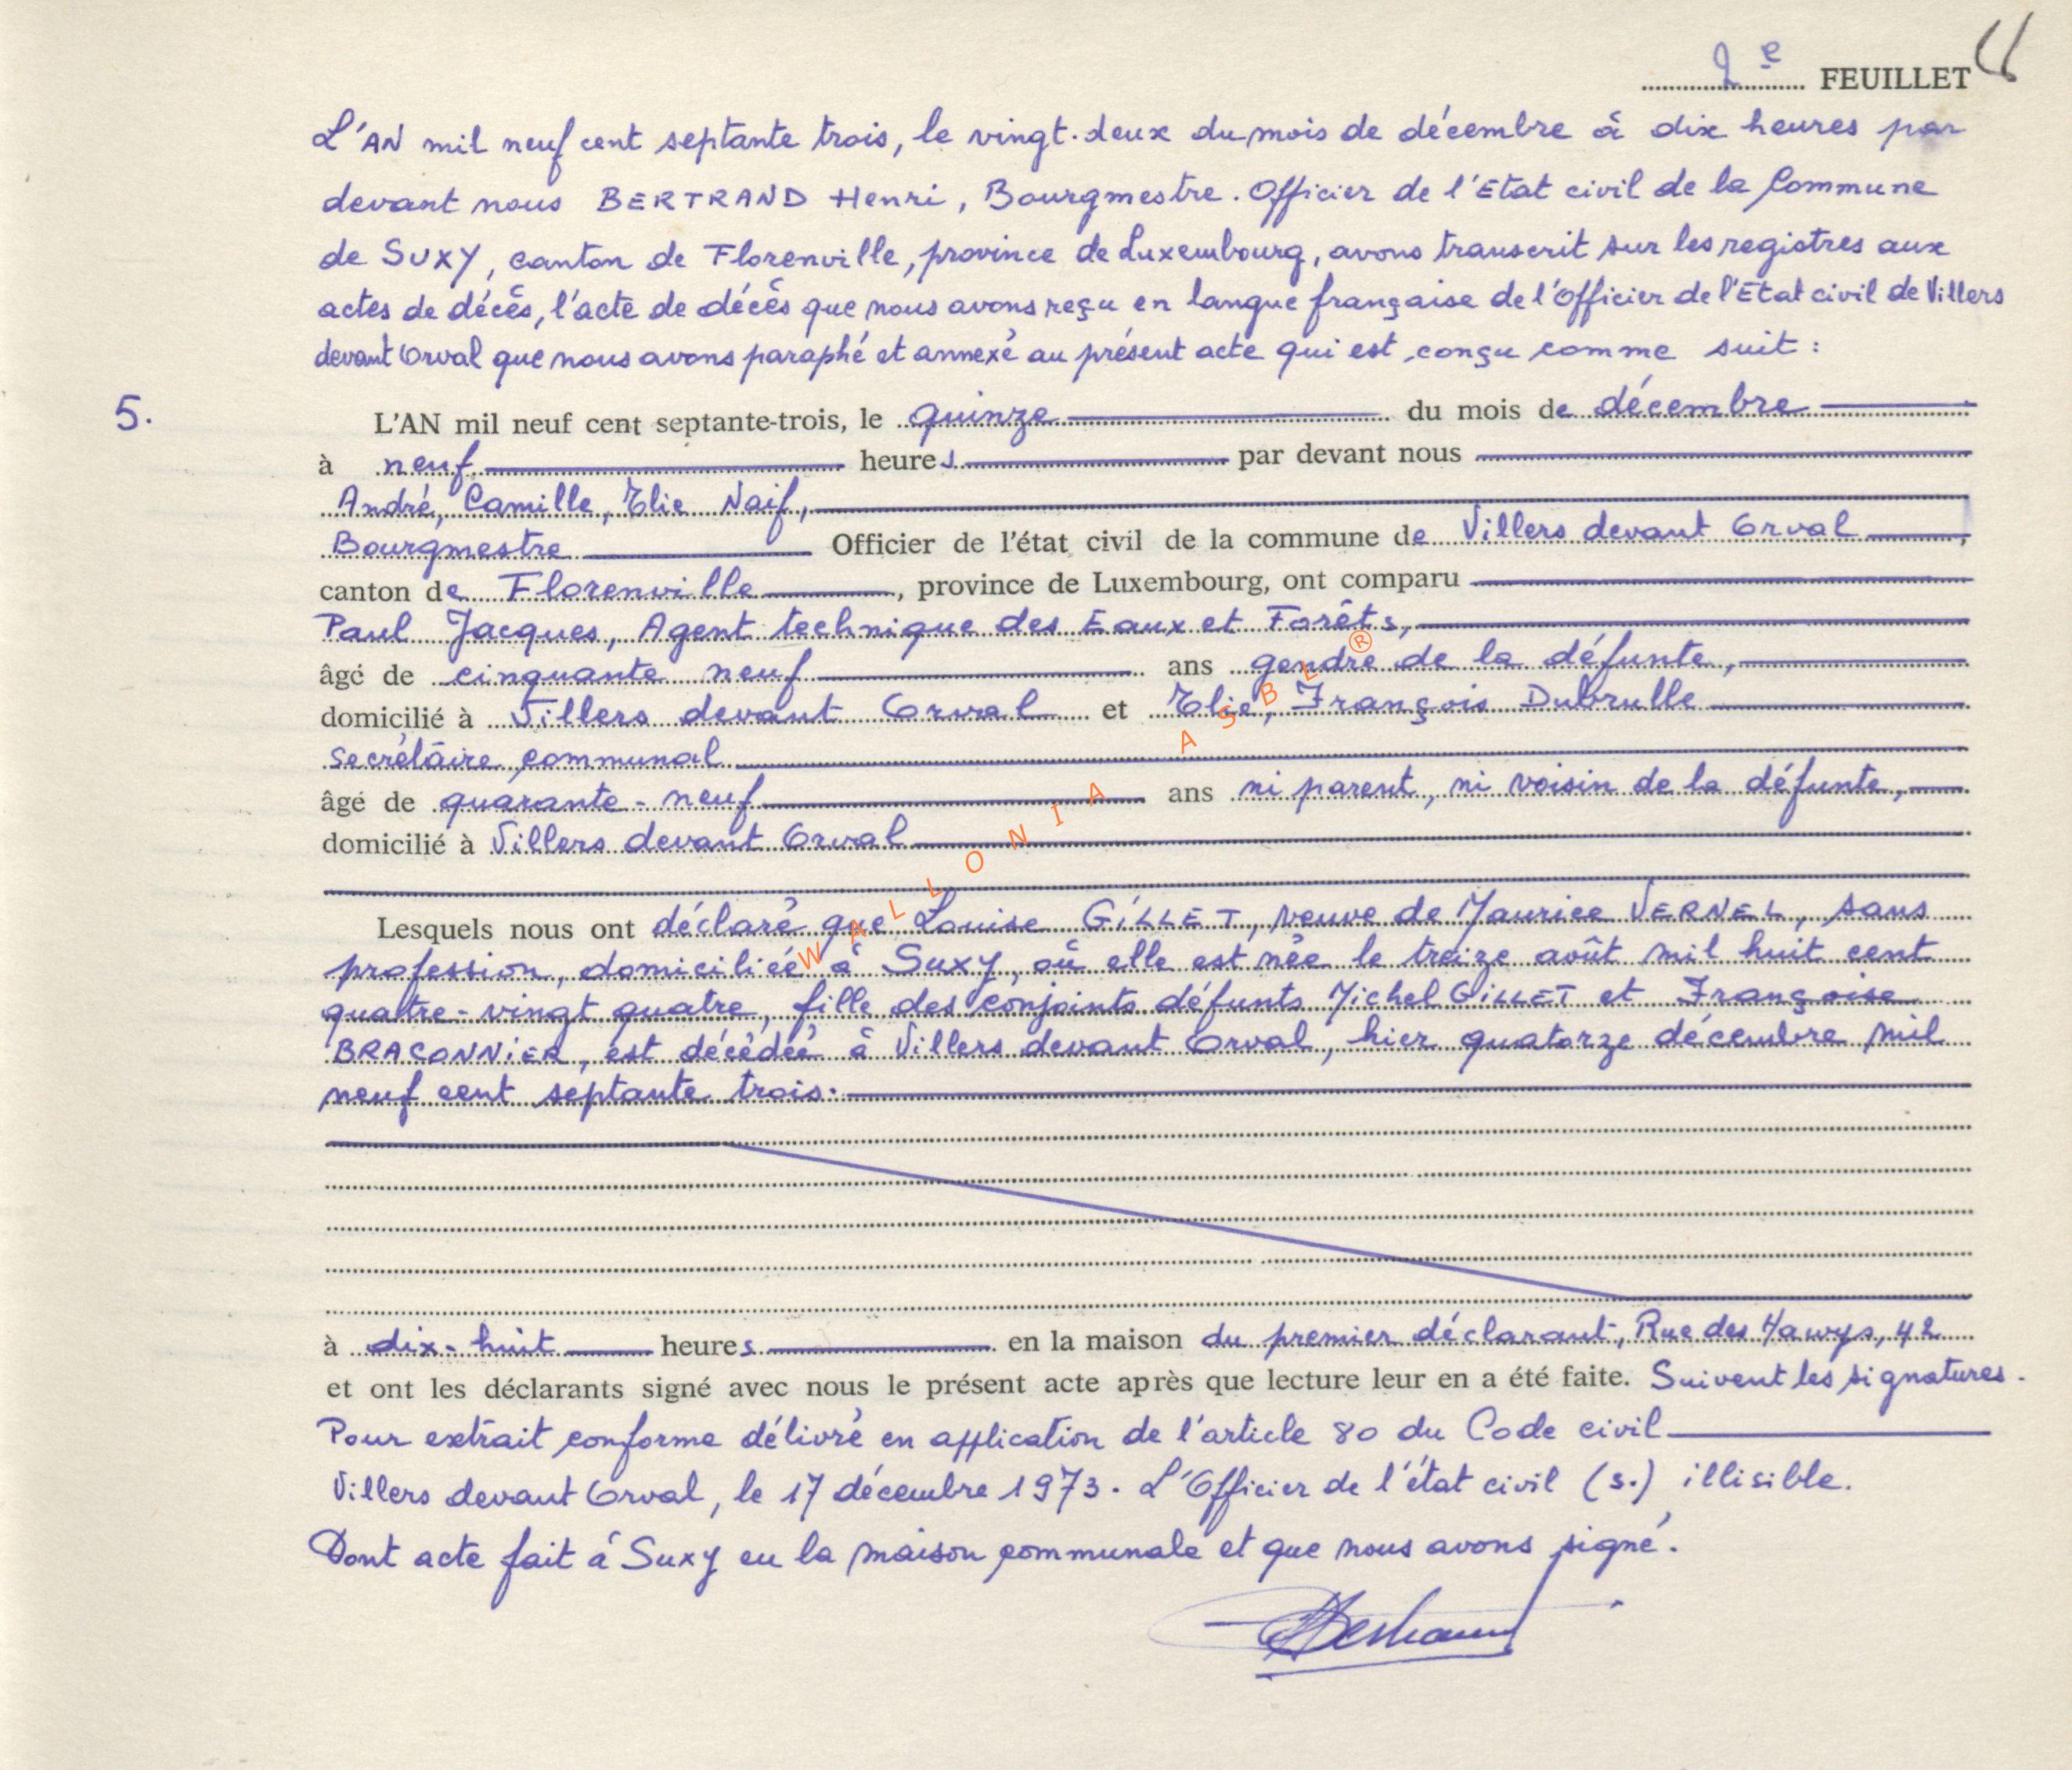 2e FEUILLET
L'AN mil neuf cent septante trois, le vingt-deux du mois de décembre à dix heures par
devant nous BERTRAND Henri, Bourgmestre. Officier de l'Etat civil de la Commune
de SUXY, canton de Florenville, province de Luxembourg, avons transcrit sur les registres aux
actes de décès, l'acte de décès que nous avons reçu en langue française de l'Officier de l'Etat civil de Villers
devant Orval que nous avons paraphé et annexé au présent acte qui est conçu comme suit :
5. L'AN mil neuf cent septante-trois, le quinze du mois de décembre
à neuf heures par devant nous
André, Camille, Elie Naif,
Bourgmestre Officier de l'état civil de la commune de Villers devant Orval,
canton de Florenville, province de Luxembourg, ont comparu
Paul Jacques, Agent technique des Eaux et Forêts,
âgé de cinquante neuf ans gendre de la défunte,
domicilié à Villers devant Orval et Elie, François Dubrulle
secrétaire communal
âgé de quarante-neuf ans ni parent, ni voisin de la défunte,
domicilié à Villers devant Orval
Lesquels nous ont déclaré que Louise GILLET, veuve de Maurice VERNEL, sans
profession, domiciliée à Suxy, où elle est née le treize août mil huit cent
quatre-vingt quatre, fille des conjoints défunts Michel GILLET et Françoise
BRACONNIER, est décédée à Villers devant Orval, hier quatorze décembre mil
neuf cent septante trois.
à dix-huit heures en la maison du premier déclarant, Rue des Hawys, 42
et ont les déclarants signé avec nous le présent acte après que lecture leur en a été faite. Suivent les signatures.
Pour extrait conforme délivré en application de l'article 80 du Code civil
Villers devant Orval, le 17 décembre 1973. L'Officier de l'état civil (s.) illisible.
Dont acte fait à Suxy en la maison communale et que nous avons signé.
HBertrand
WALLONIA ASBL ®